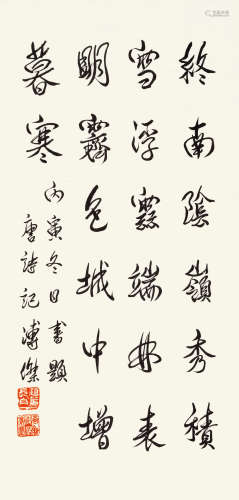 終南陰嶺秀積
雪浮雲端林表
明霽色城中增
暮寒
丙寅冬日書題
唐詩記溥傑